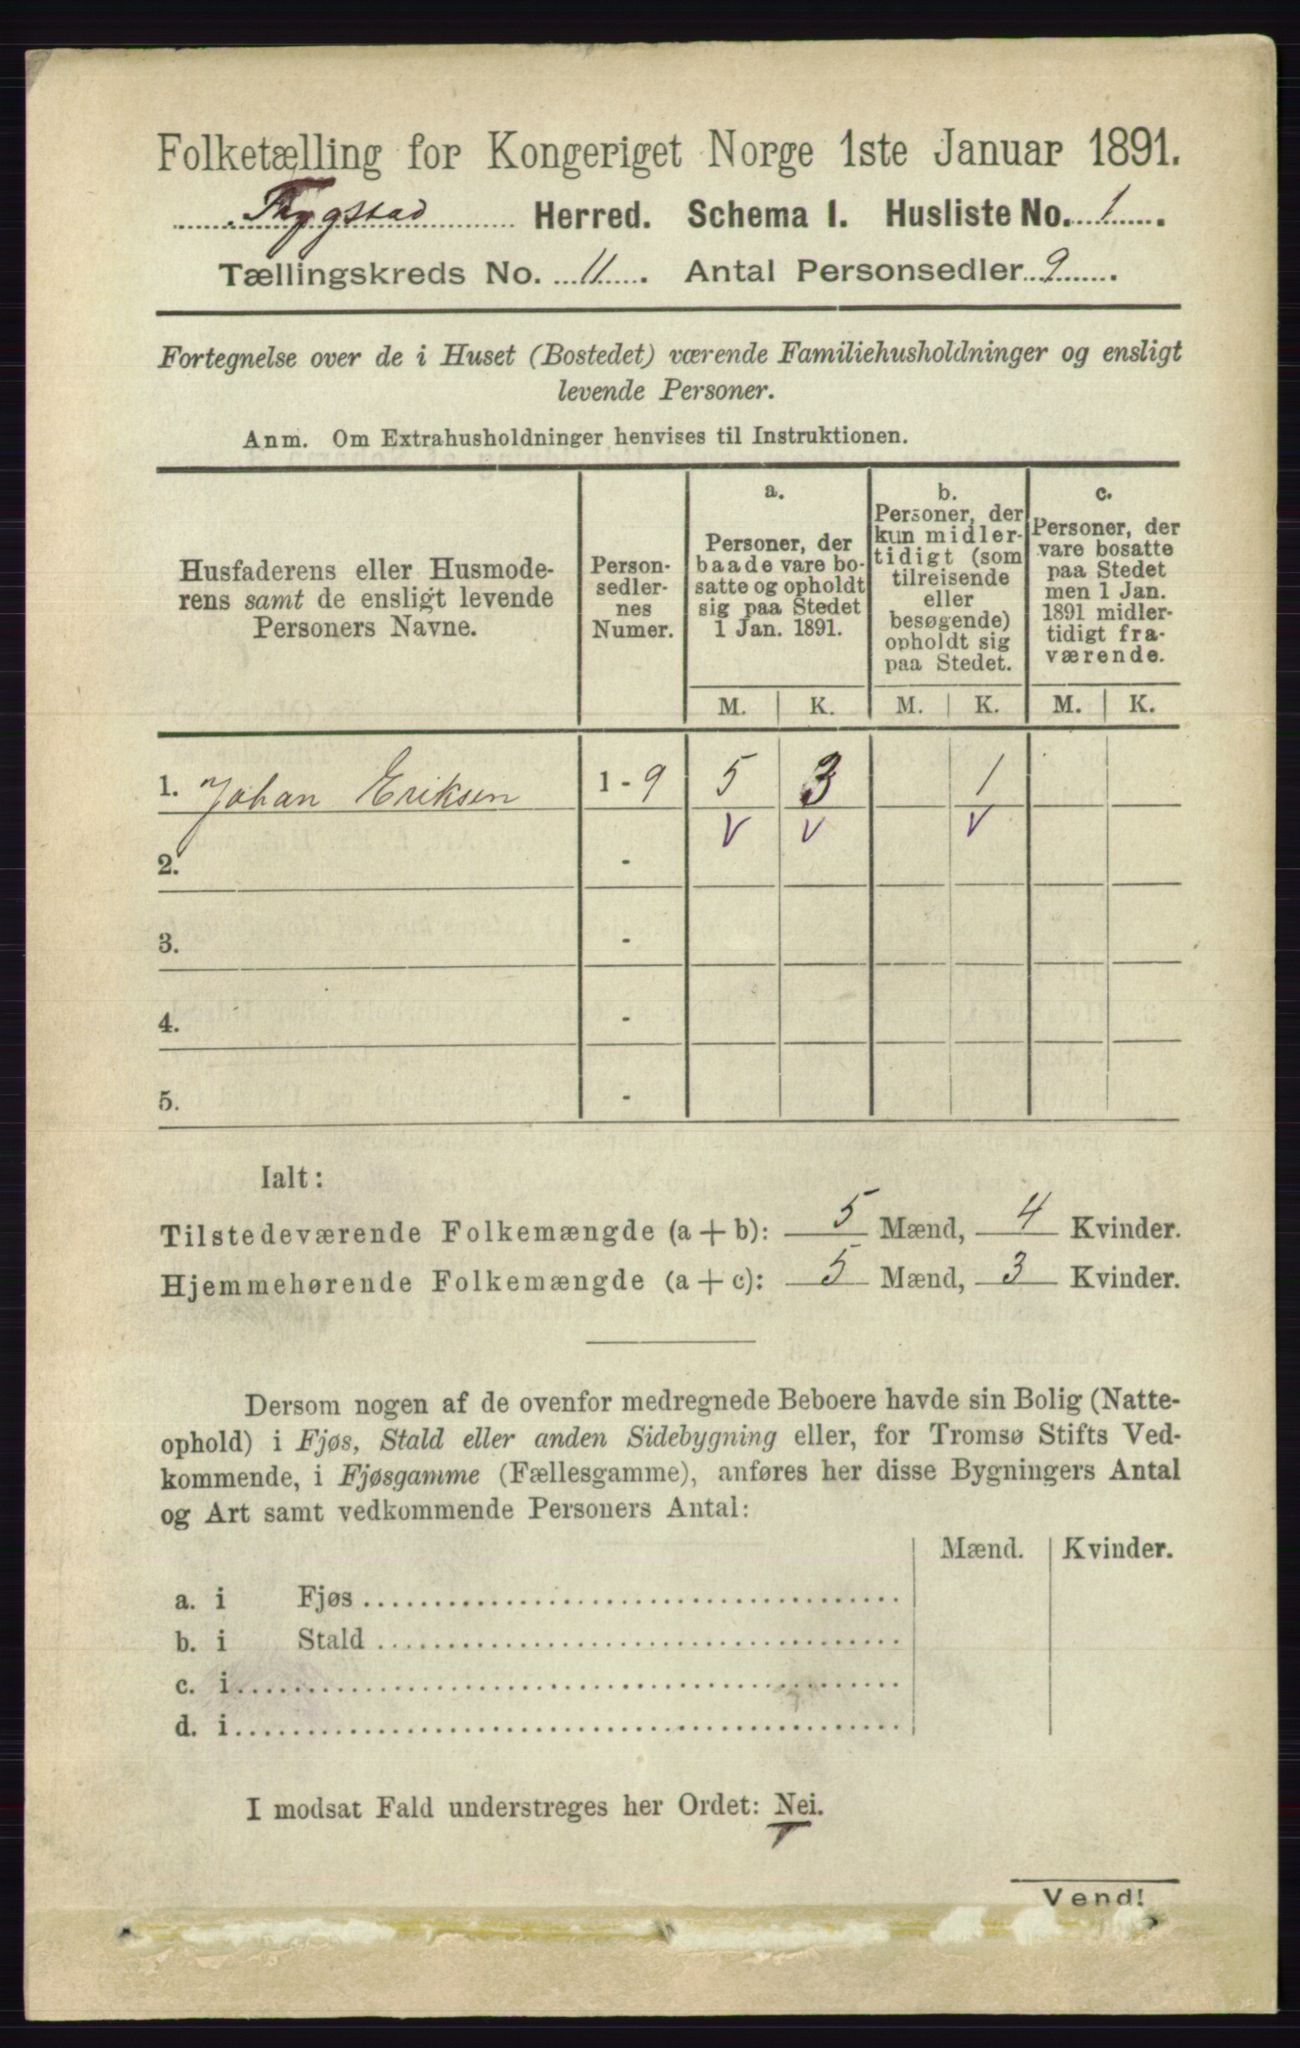 Folketælling for Kongeriget Norge 1ste Januar 1891.
Trygstad Herred. Schema 1. Husliste No. 1.
Tællingskreds No. 11. Antal Personsedler 9.
Fortegnelse over de i Huset (Bostedet) værende Familiehusholdninger og ensligt
levende Personer.
Anm. Om Extrahusholdninger henvises til Instruktionen.
Husfaderens eller Husmode-
rens samt de ensligt levende
Personers Navne.
Person-
sedler-
nes
Numer.
a.
Personer, der
baade vare bo-
satte og opholdt
sig paa Stedet
1 Jan. 1891.
b.
Personer, der
kun midler-
tidigt (som
tilreisende
eller
besøgende)
opholdt sig
paa Stedet.
c.
Personer, der
vare bosatte
paa Stedet
men 1 Jan.
1891 midler-
tidigt fra-
værende.
M. K. M. K. M. K.
1. Johan Eriksen 1 - 9 5 3 1
V V V
2. -
3. -
4. -
5. -
Ialt:
Tilstedeværende Folkemængde (a + b): 5 Mænd, 4 Kvinder.
Hjemmehørende Folkemængde (a + c): 5 Mænd, 3 Kvinder.
Dersom nogen af de ovenfor medregnede Beboere havde sin Bolig (Natte-
ophold) i Fjøs, Stald eller anden Sidebygning eller, for Tromsø Stifts Ved-
kommende, i Fjøsgamme (Fællesgamme), anføres her disse Bygningers Antal
og Art samt vedkommende Personers Antal:
Mænd. Kvinder.
a. i Fjøs
b. i Stald
c. i
d. i
I modsat Fald understreges her Ordet: Nei.
Vend!